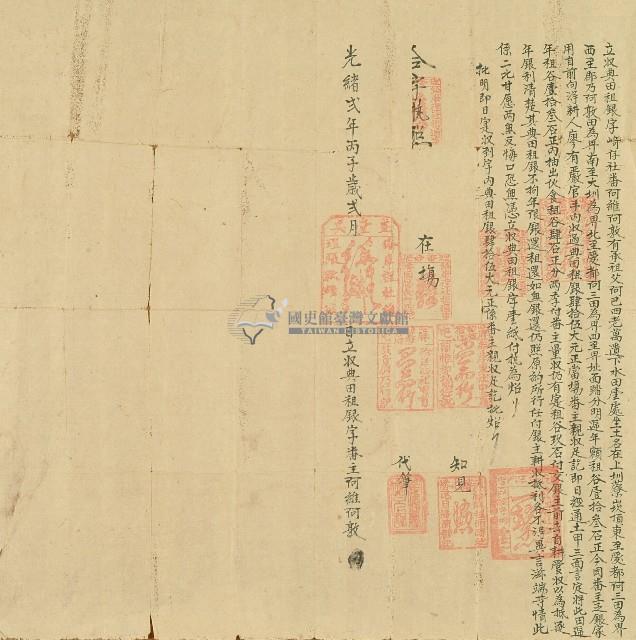 立收典田租銀字崎仔社番阿維阿敦有承祖父阿巴四老萬遺下水田壹處坐土名在上圳藔崁頂東至愛都阿三田為界
西至郡乃阿敦田為界南至大圳為界北至愛都阿三田為界四至界址面踏分明遞年願租谷壹拾叁石正今因番主乏銀
用自前向得耕人廖有嚴官手內收過典田租銀肆拾伍大元正當場番主親收足訖即日經通土甲三面言定將此田
年租谷壹拾叁石正內抽出伙食租谷肆石正分兩季付番主量收仍有定租谷玖石付交銀主前去自耕管收以為抵
年銀利清楚其典田租銀不拘年限銀還租還如無銀還仍照原約所行任付銀主耕收抵利各不得異言滋端等情此
係二比甘愿兩無反悔口恐無憑立收典田租銀字壹紙付執為炤
批明即日定收到字內典田租銀肆拾伍大元正係番主親收足訖批炤
合字執照
在場
知見
代筆
光緒弍年丙子歲弍月 立收典田租銀字番主阿維阿敦
國史館臺灣文獻館
TAIWAN HISTORICA